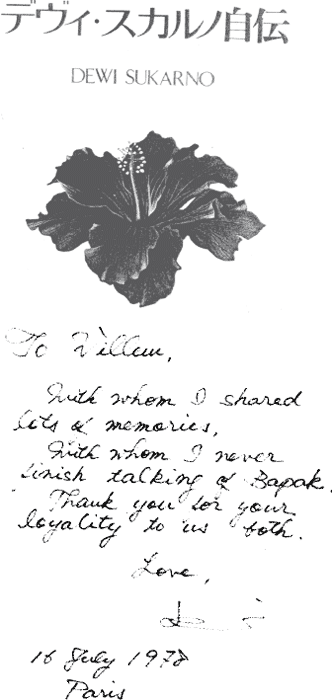 デヴィ・スカルノ自伝
DEWI SUKARNO
To Willem,
With whom I shared
lots of memories,
With whom I never
finish talking of Bapak.
Thank you for your
loyality to us both.
Love,
16 July 1978
Paris